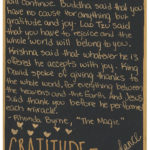 will continue. Buddha said that you
have no cause for anything but
gratitude and joy. Lao Tzu said
that you have to rejoice and the
whole world will belong to you.
Krishna said that whatever he is
offered he accepts with joy. King
David spoke of giving thanks to
the whole world, for everything between
the heavens and the Earth. And Jesus
said thank you before he performed
each miracle."
-Rhonda Byrne, "The Magic"
GRATITUDE